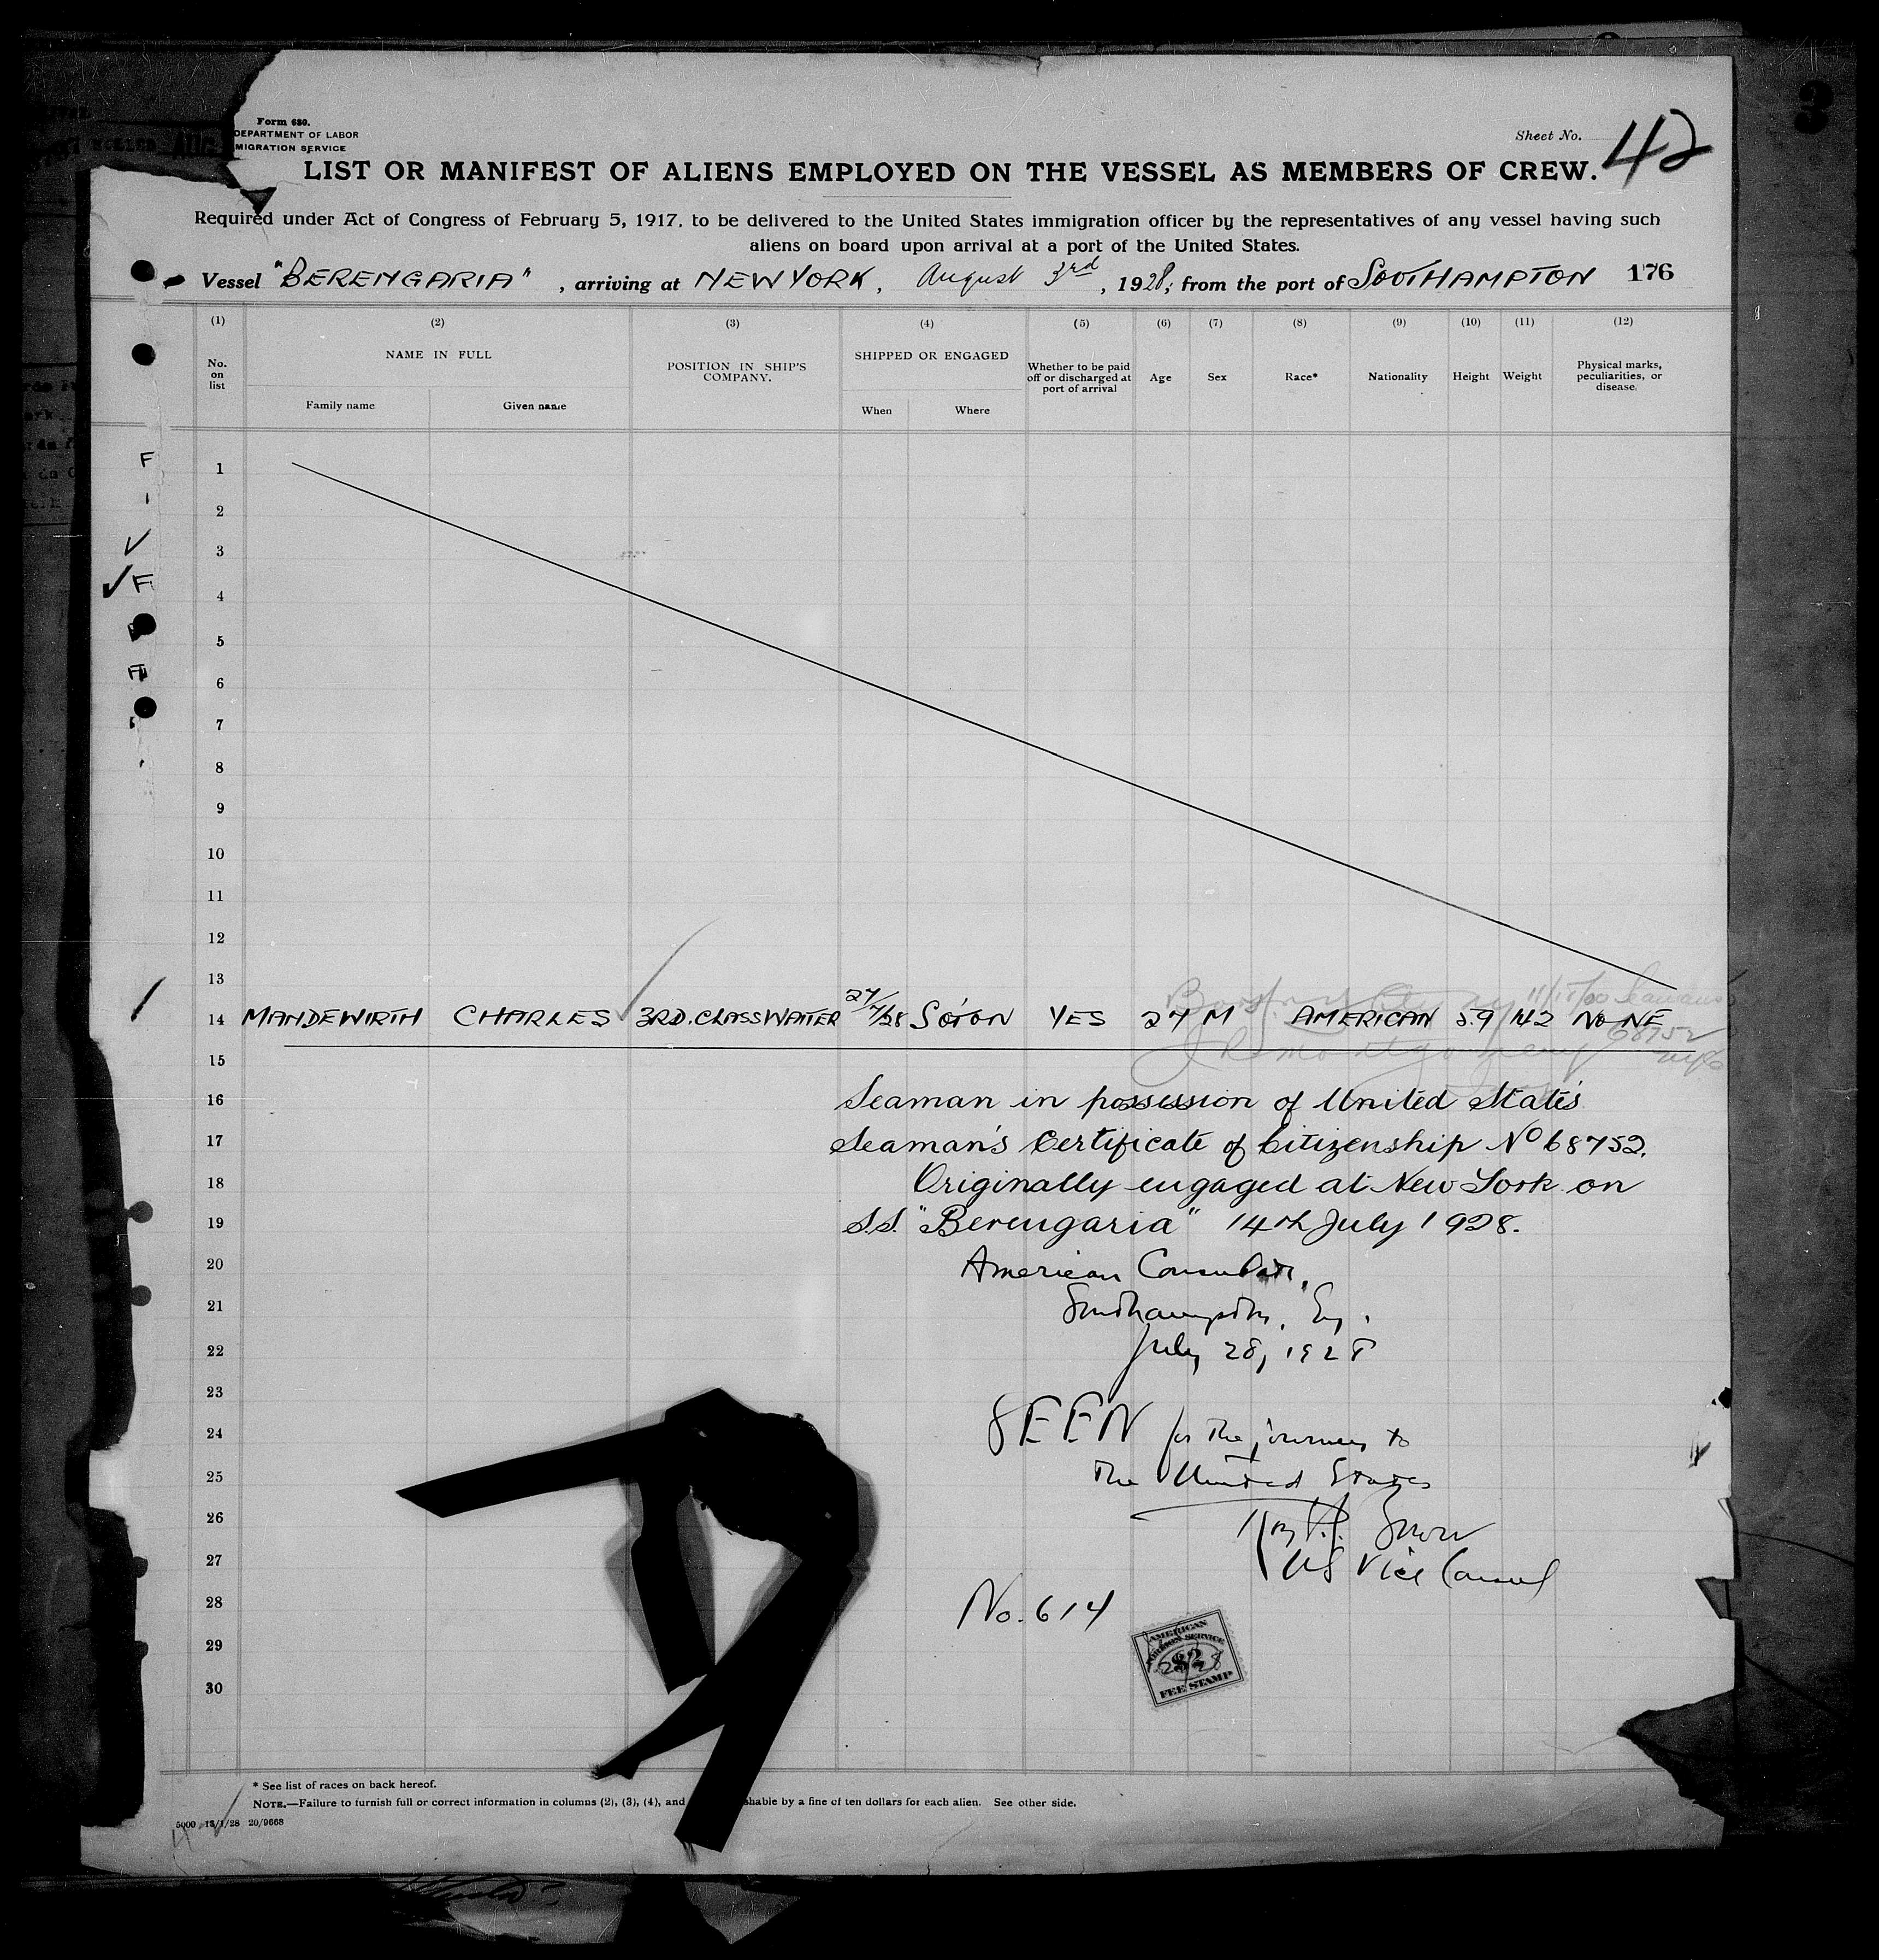 Form 680.
DEPARTMENT OF LABOR
MIGRATION SERVICE
Sheet No. 42
LIST OR MANIFEST OF ALIENS EMPLOYED ON THE VESSEL AS MEMBERS OF CREW.
Required under Act of Congress of February 5, 1917, to be delivered to the United States immigration officer by the representatives of any vessel having such
aliens on board upon arrival at a port of the United States.
Vessel "BERENGARIA", arriving at NEW YORK, August 3rd, 1928; from the port of SOUTHAMPTON 176
(1) (2) (3) (4) (5) (6) (7) (8) (9) (10) (11) (12)
No. on list
NAME IN FULL
Family name Given name
POSITION IN SHIP'S COMPANY.
SHIPPED OR ENGAGED
When Where
Whether to be paid off or discharged at port of arrival
Age Sex Race* Nationality Height Weight
Physical marks, peculiarities, or disease.
F
1
2
3
F
4
5
6
7
8
9
10
11
12
13
11/15/00 Seamans
14 MANDEWIRTH CHARLES 3RD.CLASS WAITER 27/7/28 SO'TON YES 27 M AMERICAN 5.9 142 NONE
68752
15
16 Seaman in possession of United States
17 Seaman's Certificate of Citizenship No 68752.
18 Originally engaged at New York on
19 S.S. "Berengaria" 14th July 1928.
20 American Consulate,
21 Southampton, Eng.
22 July 28, 1928
23
24 SEEN for the journey to
25 The United States
26
27 US Vice Consul
28 No. 614
29
30
AMERICAN
FOREIGN SERVICE
$2
FEE STAMP
* See list of races on back hereof.
NOTE.—Failure to furnish full or correct information in columns (2), (3), (4), and shable by a fine of ten dollars for each alien. See other side.
5000 13/1/28 20/9668